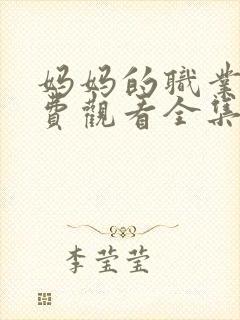 妈妈的職業
費觀看全集
李莹莹